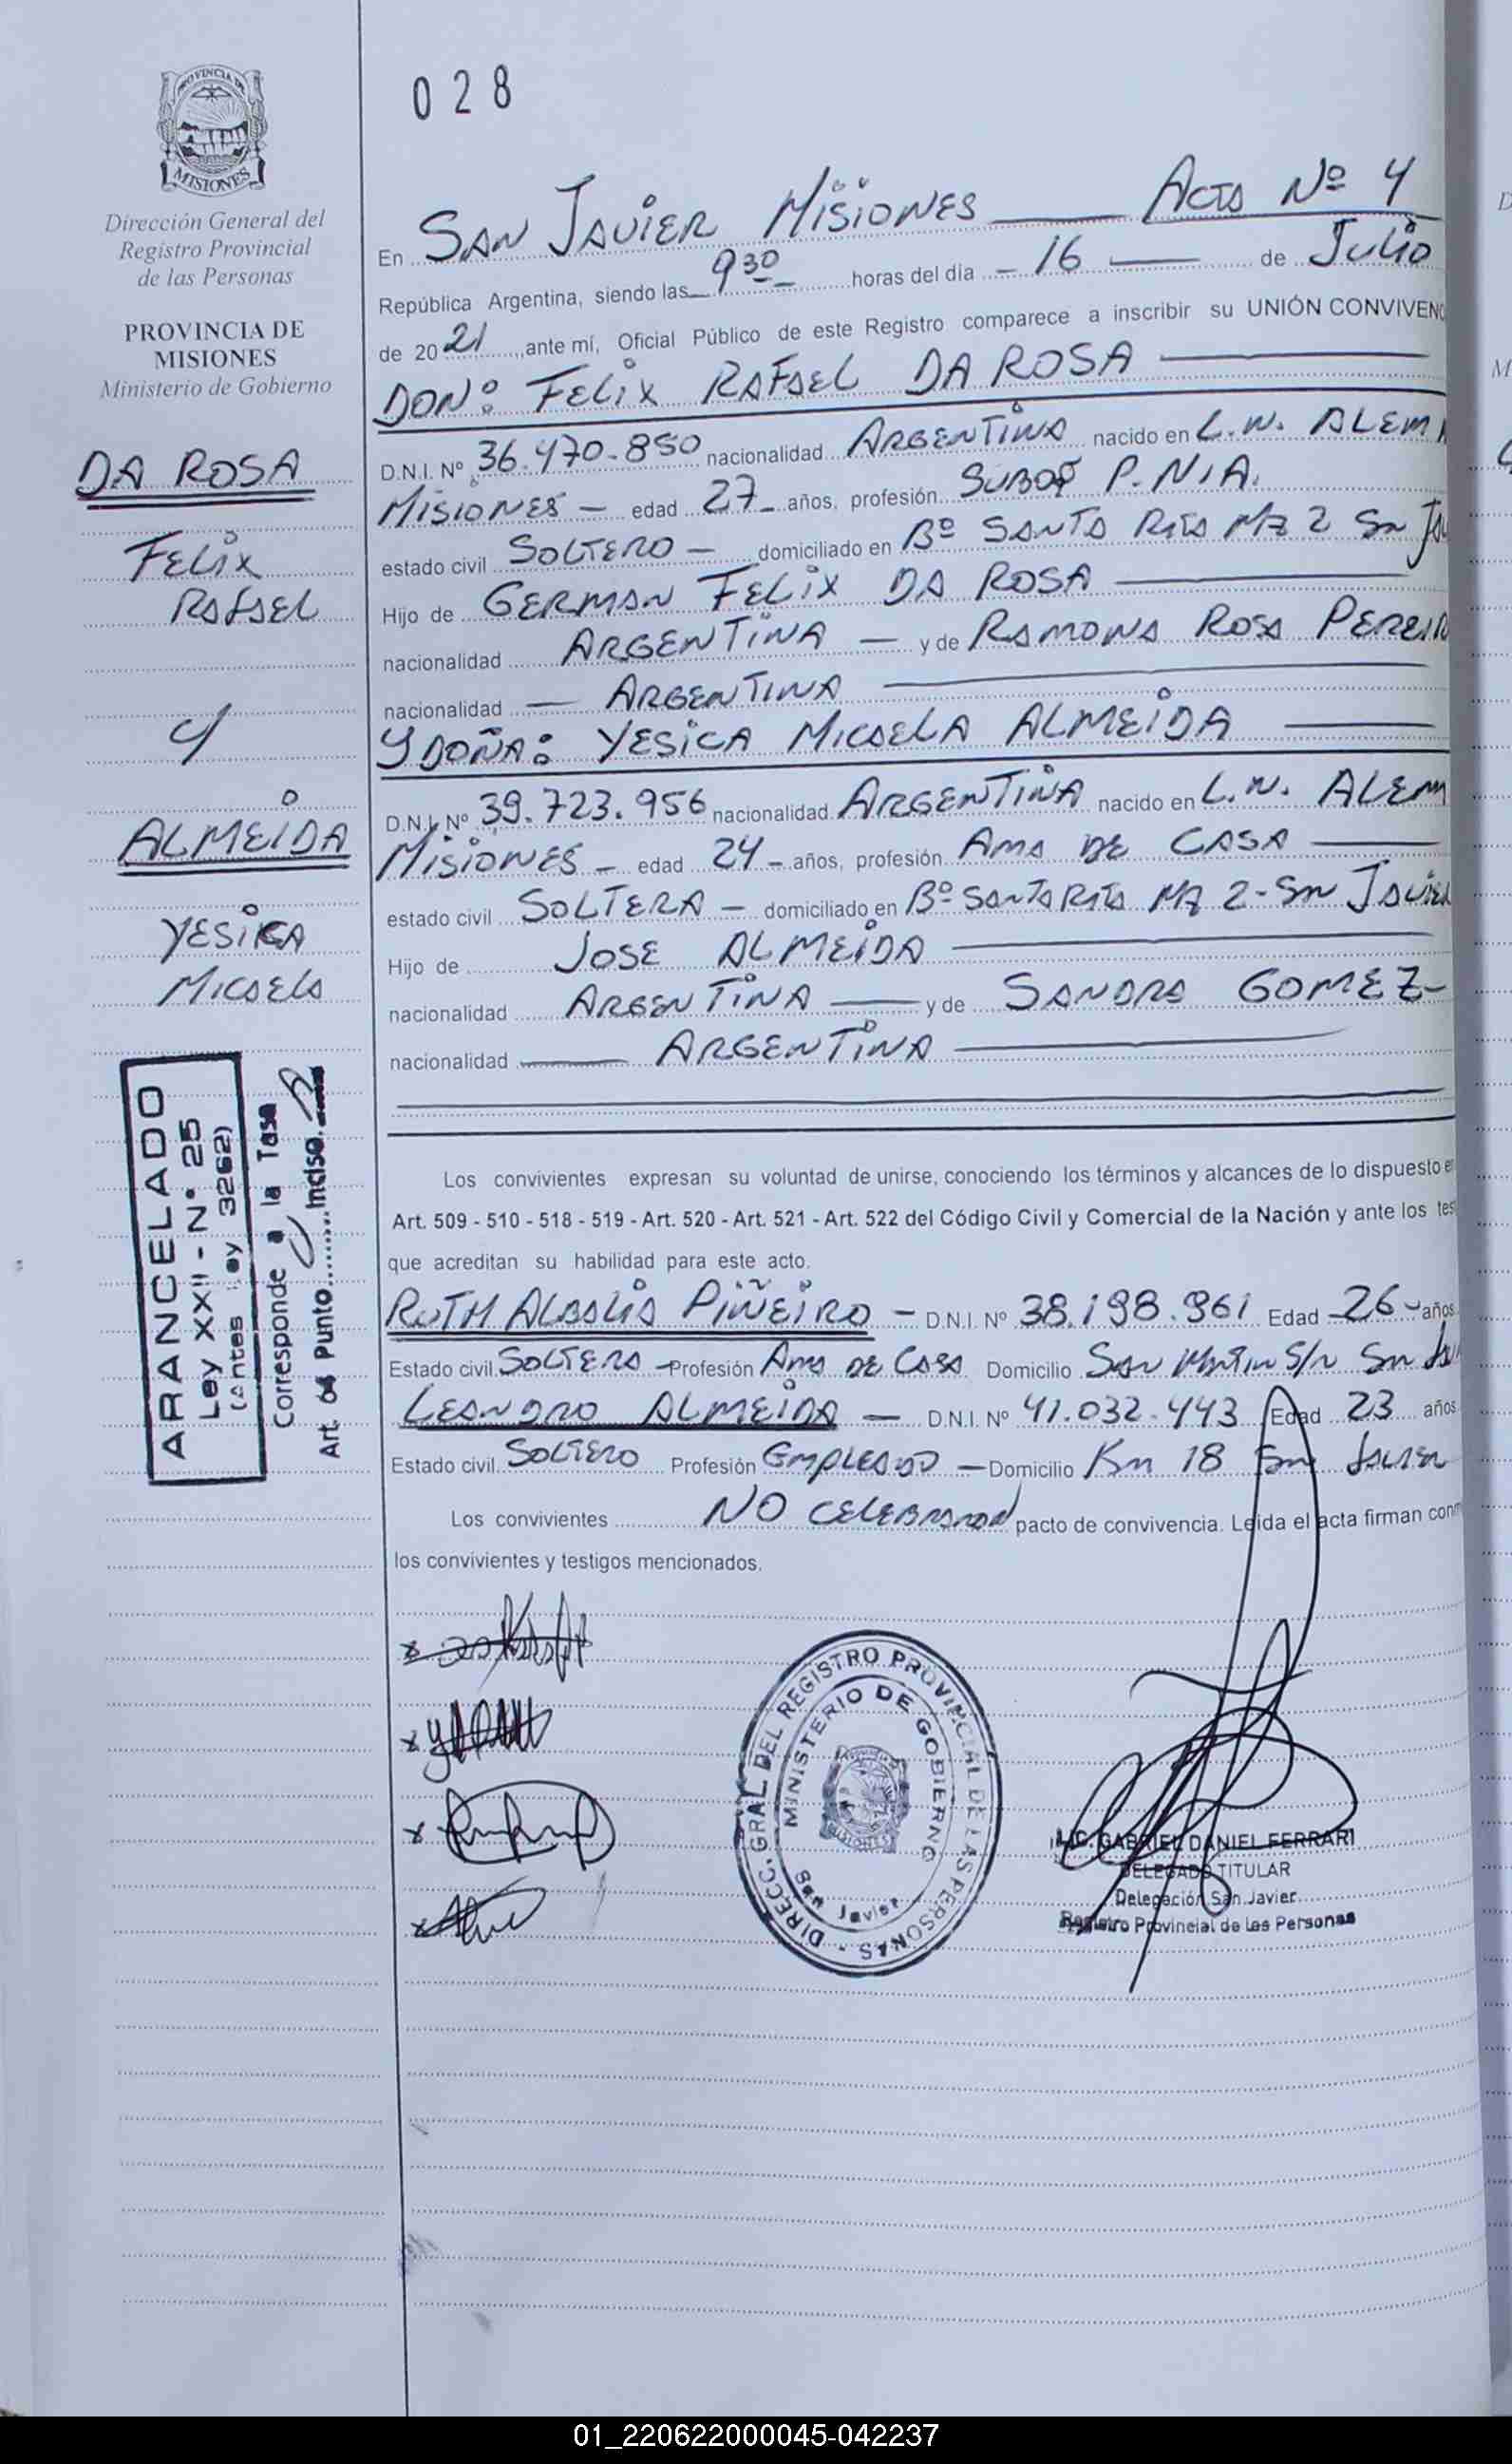 028
PROVINCIA DE
MISIONES
Dirección General del
Registro Provincial
de las Personas
PROVINCIA DE
MISIONES
Ministerio de Gobierno
DA ROSA
FELIX
RAFAEL
Y
ALMEIDA
YESICA
MICAELA
ARANCELADO
Ley XXII - N° 25
(Antes Ley 3262)
Corresponde a la Tasa
Art. 64 Punto Inciso
En SAN JAVIER MISIONES ACTA Nº 4
República Argentina, siendo las 9 30 horas del día 16 de JULIO
de 2021 ,ante mí, Oficial Público de este Registro comparece a inscribir su UNIÓN CONVIVENC
DON: FELIX RAFAEL DA ROSA
D.N.I. Nº 36.470.850 nacionalidad ARGENTINA nacido en L.N. ALEM
MISIONES - edad 27 - años, profesión SUBOF P.N.A.
estado civil SOLTERO - domiciliado en Bº SANTA RITA MZ 2 Sn Ja
Hijo de GERMAN FELIX DA ROSA
nacionalidad ARGENTINA - y de RAMONA ROSA PEREIR
nacionalidad - ARGENTINA
Y DOÑA: YESICA MICAELA ALMEIDA
D.N.I. Nº 39.723.956 nacionalidad ARGENTINA nacido en L.N. ALEM
MISIONES - edad 24 - años, profesión AMA DE CASA
estado civil SOLTERA - domiciliado en Bº SANTA RITA MZ 2 - Sn JAVIER
Hijo de JOSE ALMEIDA
nacionalidad ARGENTINA y de SANDRA GOMEZ -
nacionalidad ARGENTINA
Los convivientes expresan su voluntad de unirse, conociendo los términos y alcances de lo dispuesto en
Art. 509 - 510 - 518 - 519 - Art. 520 - Art. 521 - Art. 522 del Código Civil y Comercial de la Nación y ante los tes
que acreditan su habilidad para este acto.
RUTH ALBALIA PIÑEIRO - D.N.I. Nº 38.198.961 Edad 26 - años
Estado civil SOLTERA - Profesión AMA DE CASA Domicilio SAN MARTIN S/N Sn Ja
LEANDRO ALMEIDA - D.N.I. Nº 41.032.443 Edad 23 años
Estado civil SOLTERO Profesión EMPLEADO - Domicilio Km 18 Sn JAVIER
Los convivientes NO CELEBRARON pacto de convivencia. Leída el acta firman conm
los convivientes y testigos mencionados.
DIRECC. GRAL DEL REGISTRO PROVINCIAL DE LAS PERSONAS -
MINISTERIO DE GOBIERNO
MISIONES
San Javier
LIC. GABRIEL DANIEL FERRARI
DELEGADO TITULAR
Delegación San Javier
Registro Provincial de las Personas
01_220622000045-042237